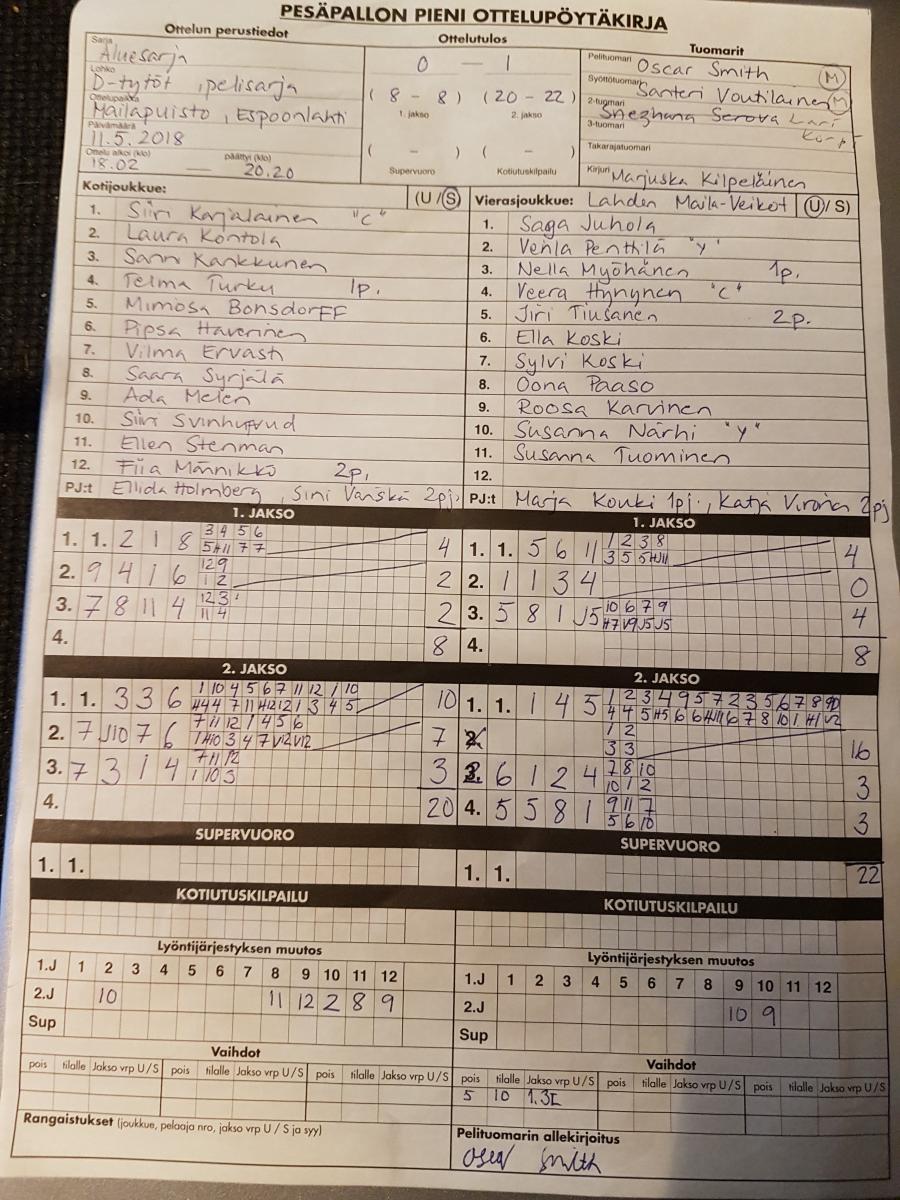 PESÄPALLON PIENI OTTELUPÖYTÄKIRJA
Ottelun perustiedot
Sarja
Aluesarja
Lohko
D-tytöt, pelisarja
Ottelupaikka
Mailapuisto, Espoonlahti
Päivämäärä
11.5.2018
Ottelu alkoi (klo) päättyi (klo)
18.02 — 20.20
Ottelutulos
0 — 1
(8 - 8) (20 - 22)
1. jakso 2. jakso
( - ) ( - )
Supervuoro Kotiutuskilpailu
Tuomarit
Pelituomari Oscar Smith M
Syöttötuomari Santeri Voutilainen M
2-tuomari Snezhana Serova Lari
3-tuomari
Takarajatuomari
Kirjuri Marjuska Kilpeläinen
Kotijoukkue: (U/S)
1. Siiri Karjalainen "C"
2. Laura Kontola
3. Sanni Kankkunen
4. Telma Turku 1p.
5. Mimosa Bonsdorff
6. Pipsa Haverinen
7. Vilma Ervasti
8. Saara Syrjälä
9. Ada Melen
10. Siiri Svinhufvud
11. Ellen Stenman
12. Fiia Männikkö 2p.
PJ:t Ellida Holmberg, Sini Vänskä 2pj.
Vierasjoukkue: Lahden Maila-Veikot (U/S)
1. Saga Juhola
2. Venla Penttilä "Y"
3. Nella Myöhänen 1p.
4. Veera Hynynen "C"
5. Jiri Tiusanen 2p.
6. Ella Koski
7. Sylvi Koski
8. Oona Paaso
9. Roosa Karvinen
10. Susanna Närhi "Y"
11. Susanna Tuominen
12.
PJ:t Marja Kouki 1pj., Katja 2pj
1. JAKSO
3 4 5 6
1. 1. 2 1 8 4
2. 9 4 1 6 2
3. 7 8 11 4 2
4. 8
1. JAKSO
1 2 3 8
1. 1. 5 6 11 4
2. 1 1 3 4 0
10 6 7 9
3. 5 8 1 J5 4
4. 8
2. JAKSO
1 10 4 5 6 7 11 12 1 10
1. 1. 3 3 6 10
7 11 12 1 4 5 6
2. 7 J10 7 6 7
7 11 12
3. 7 3 1 4 1 10 3 3
4. 20
2. JAKSO
1 2 3 4 9 5 7 2 3 5 6 7 8 9
1. 1. 1 4 5
2. 1 2
3 3 16
7 8 10
3. 6 1 2 4 10 1 2 3
9 11 7
4. 5 5 8 1 5 6 10 3
SUPERVUORO
1. 1.
SUPERVUORO
1. 1. 22
KOTIUTUSKILPAILU
KOTIUTUSKILPAILU
Lyöntijärjestyksen muutos
1.J 1 2 3 4 5 6 7 8 9 10 11 12
2.J 10 11 12 2 8 9
Sup
Lyöntijärjestyksen muutos
1.J 1 2 3 4 5 6 7 8 9 10 11 12
2.J 10 9
Sup
Vaihdot
pois tilalle Jakso vrp U/S pois tilalle Jakso vrp U/S pois tilalle Jakso vrp U/S
Vaihdot
pois tilalle Jakso vrp U/S pois tilalle Jakso vrp U/S pois tilalle Jakso vrp U/S
5 10 1.3L
Rangaistukset (joukkue, pelaaja nro, jakso vrp U/S ja syy)
Pelituomarin allekirjoitus
Oscar Smith